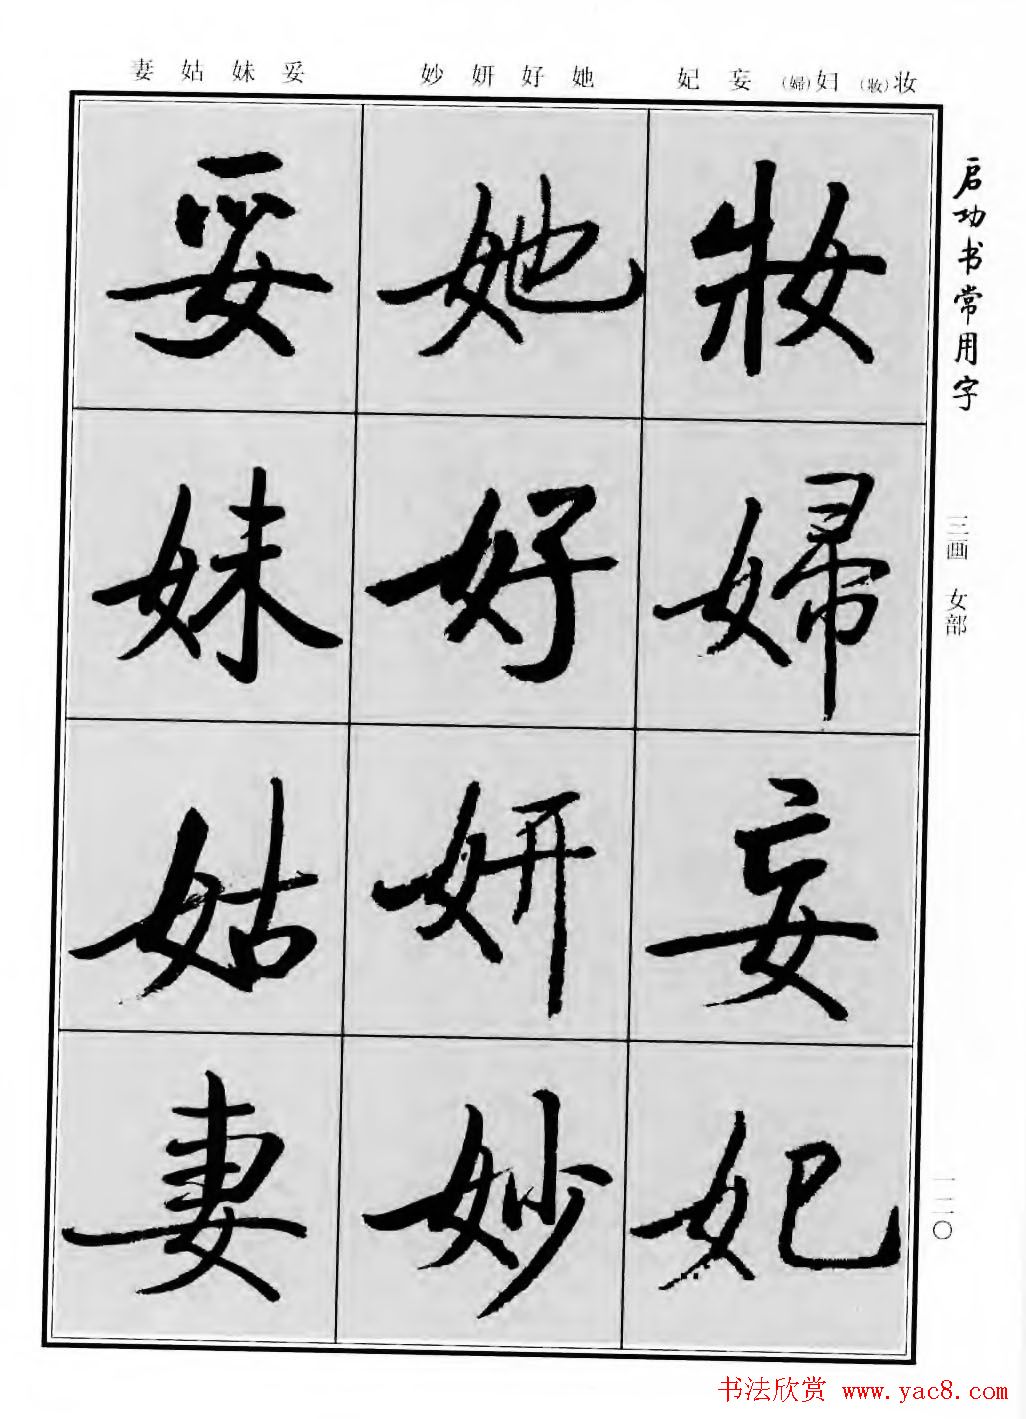 妆(妝) 妇(婦) 妄 妃
她 好 妍 妙
妥 妹 姑 妻
启功书常用字
三画 女部
一二〇
妝 婦 妄 妃
她 好 妍 妙
妥 妹 姑 妻
书法欣赏 www.yac8.com